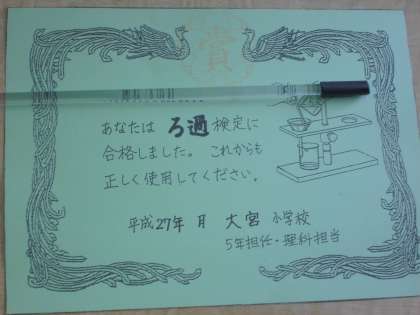 賞
あなたは ろ過 検定に
合格しました。これからも
正しく使用してください。
平成27年 月 大宮 小学校
5年担任・理科担当